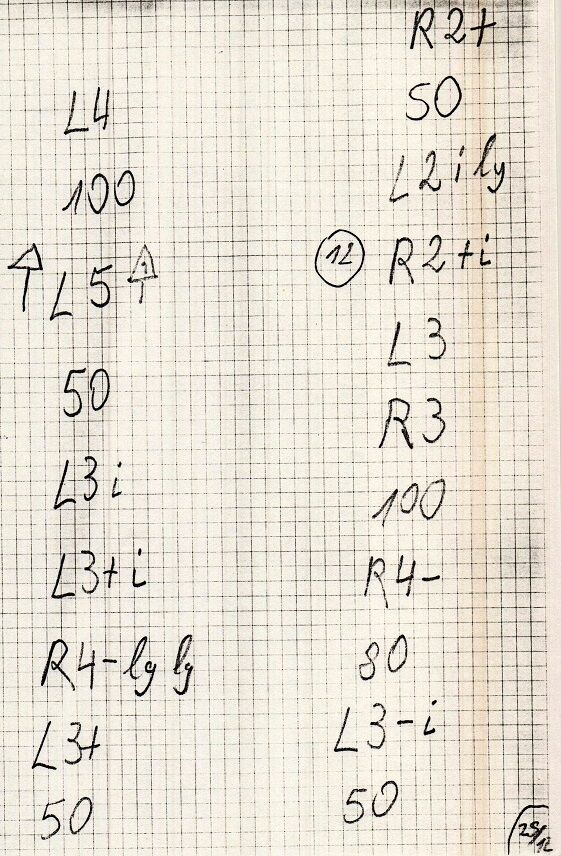 L4
100
↑ L5 ↑
50
L3 i
L3+ i
R4- lg lg
L3+
50
R2+
50
L2 i lg
12 R2+i
L3
R3
100
R4-
80
L3-i
50